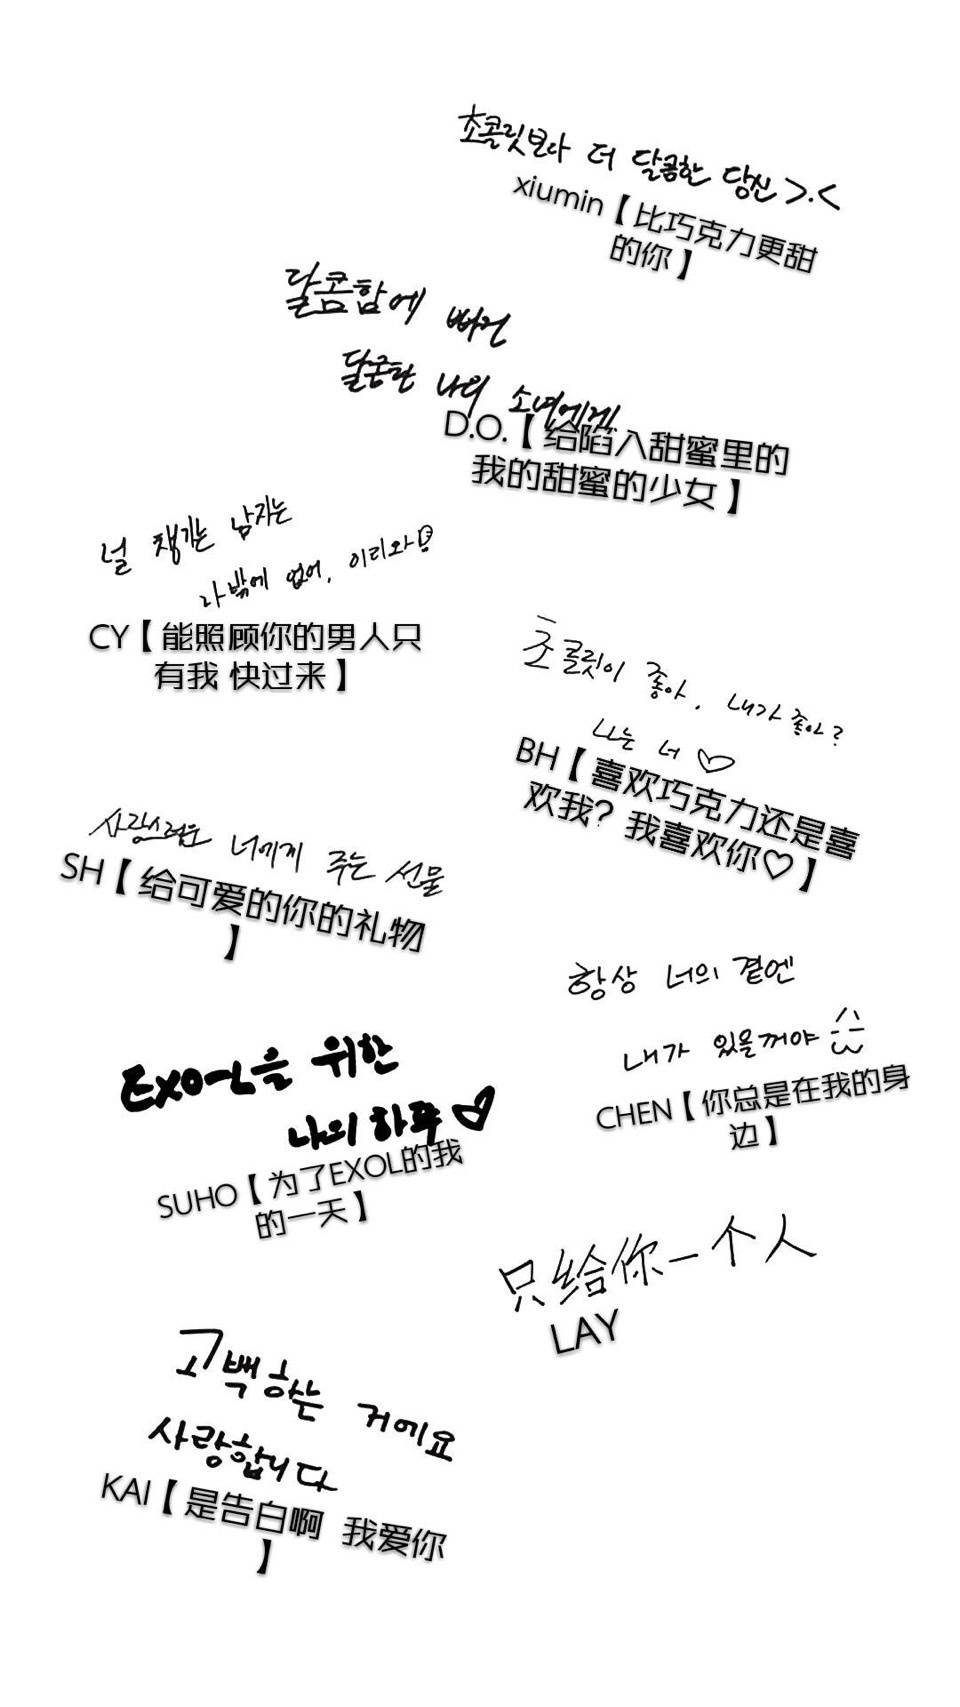 초콜릿보다 더 달콤한 당신 >.<
xiumin【比巧克力更甜
的你】
달콤함에 빠진
달콤한 나의 소녀에게
D.O.【给陷入甜蜜里的
我的甜蜜的少女】
널 챙기는 남자는
나밖에 없어, 이리와
CY【能照顾你的男人只
有我 快过来】
초콜릿이 좋아, 내가 좋아?
나는 너♡
BH【喜欢巧克力还是喜
欢我? 我喜欢你♡】
사랑스러운 너에게 주는 선물
SH【给可爱的你的礼物
】
항상 너의 곁엔
내가 있을꺼야
CHEN【你总是在我的身
边】
EXO-L을 위한
나의 하루♡
SUHO【为了EXOL的我
的一天】
只给你一个人
LAY
고백하는 거에요
사랑합니다
KAI【是告白啊 我爱你
】